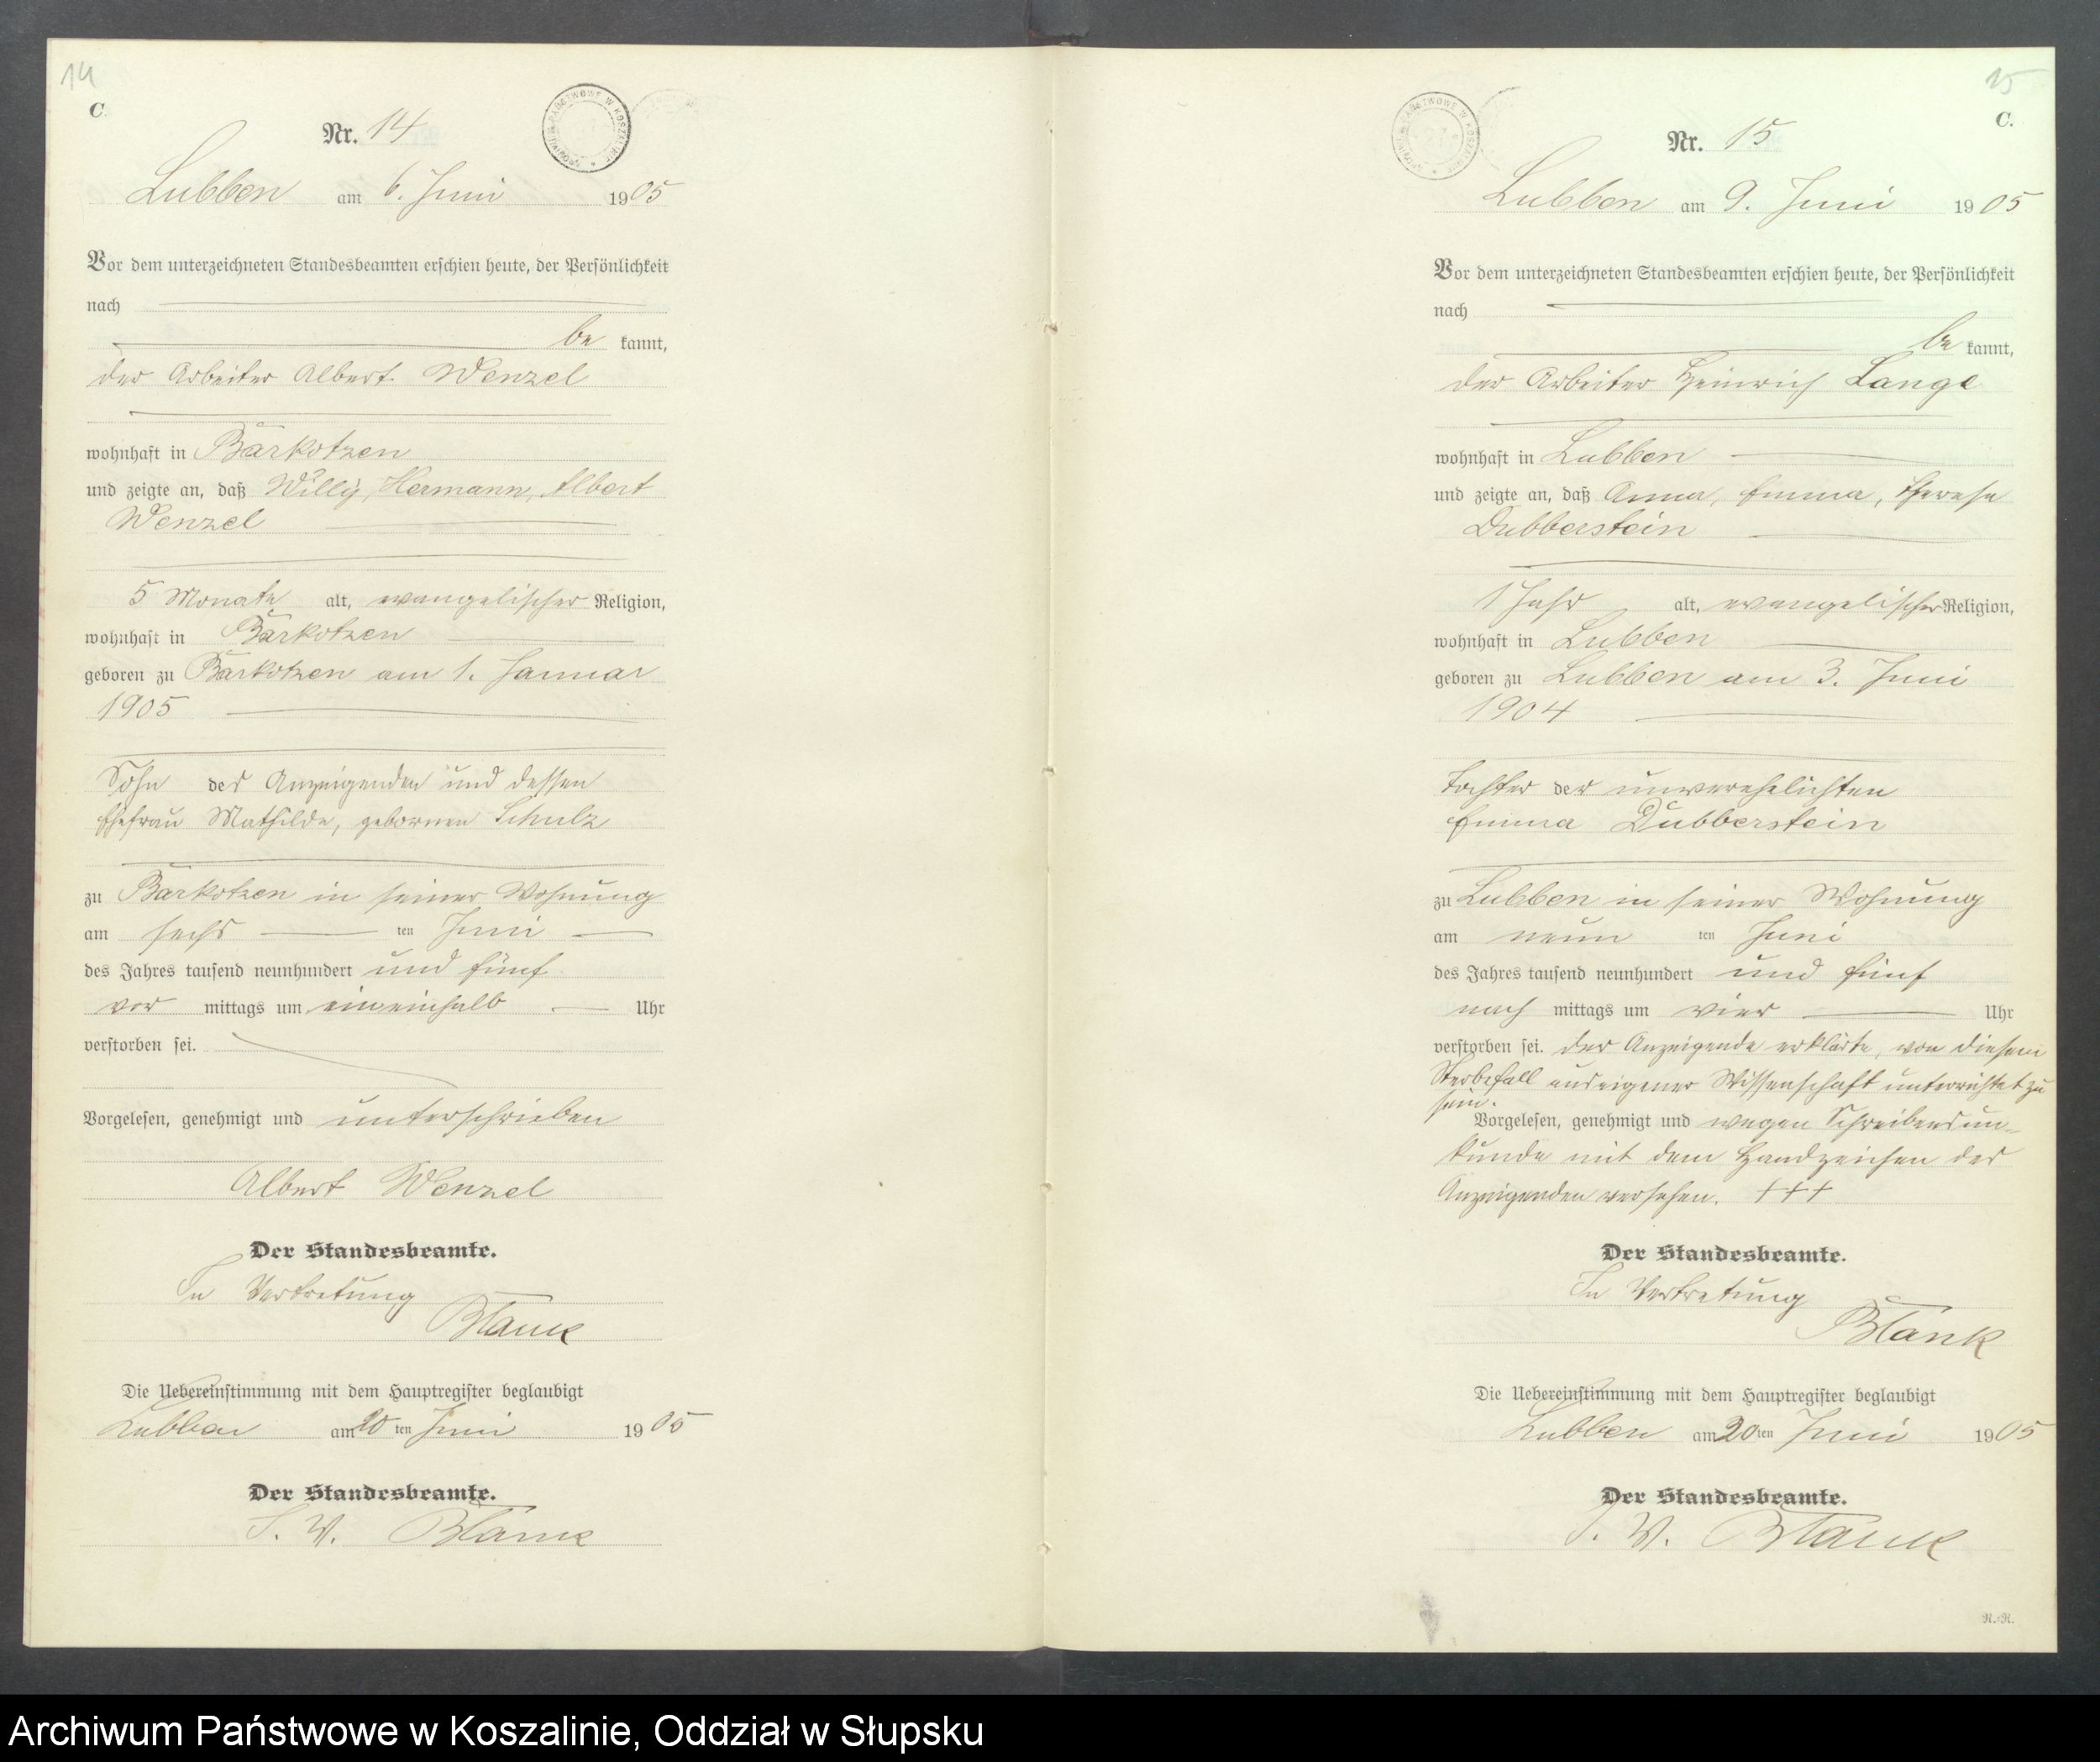 14
C.
Nr. 14
Lubben am 6. Juni 1905
Vor dem unterzeichneten Standesbeamten erschien heute, der Persönlichkeit
nach
be kannt,
der Arbeiter Albert Wenzel
wohnhaft in Barkotzen
und zeigte an, daß Willy, Hermann, Albert
Wenzel
5 Monate alt, evangelischer Religion,
wohnhaft in Barkotzen
geboren zu Barkotzen am 1. Januar
1905
Sohn des Anzeigenden und dessen
Ehefrau Mathilde, gebornen Schulz
zu Barkotzen in seiner Wohnung
am sechs ten Juni
des Jahres tausend neunhundert und fünf
vor mittags um eineinhalb Uhr
verstorben sei.
Vorgelesen, genehmigt und unterschrieben
Albert Wenzel
Der Standesbeamte.
In Vertretung
Blank
Die Uebereinstimmung mit dem Hauptregister beglaubigt
Lubben am 20 ten Juni 1905
Der Standesbeamte.
I. V. Blank
15
C.
Nr. 15
Lubben am 9. Juni 1905
Vor dem unterzeichneten Standesbeamten erschien heute, der Persönlichkeit
nach
be kannt,
der Arbeiter Heinrich Lange
wohnhaft in Lubben
und zeigte an, daß Anna, Emma, Therese
Dubberstein
1 Jahr alt, evangelischer Religion,
wohnhaft in Lubben
geboren zu Lubben am 3. Juni
1904
Tochter der unverehelichten
Emma Dubberstein
zu Lubben in seiner Wohnung
am neun ten Juni
des Jahres tausend neunhundert und fünf
nach mittags um vier Uhr
verstorben sei. Der Anzeigende erklärte, von diesem
Sterbefall aus eigener Wissenschaft unterrichtet zu
sein.
Vorgelesen, genehmigt und wegen Schreibensun-
kunde mit dem Handzeichen des
Anzeigenden versehen. +++
Der Standesbeamte.
In Vertretung
Blank
Die Uebereinstimmung mit dem Hauptregister beglaubigt
Lubben am 20 ten Juni 1905
Der Standesbeamte.
I. V. Blank
N.-R.
Archiwum Państwowe w Koszalinie, Oddział w Słupsku